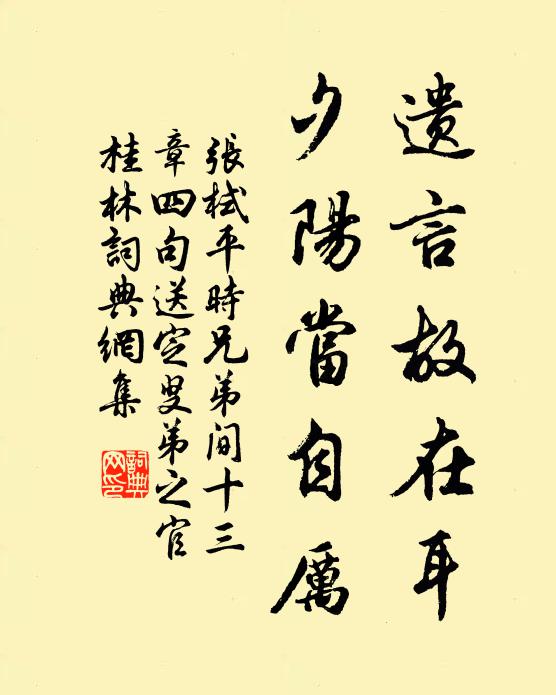 遺言故在耳
夕陽當自厲
張栻平時兄弟間十三
章四句送定叟弟之官
桂林詞典網集
詞典网印